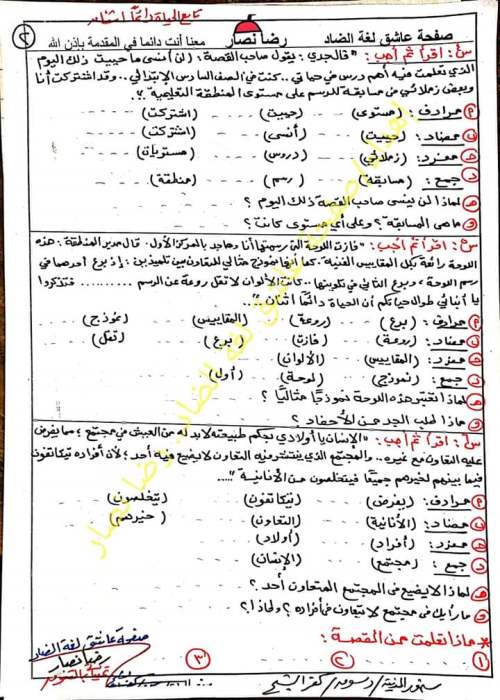 تابع الحياة دائمًا اثنان
صفحة عاشق لغة الضاد رضا نصار معنا أنت دائما في المقدمة بإذن الله
٢
س١: اقرأ ثم أجب: "قال جدي: يقول صاحب القصة: لن أنسى ما حييت ذلك اليوم
الذي تعلمت فيه أهم درس في حياتي.. كنت في الصف السادس الابتدائي.. وقد اشتركت أنا
وبعض زملائي في مسابقة للرسم على مستوى المنطقة التعليمية"..
أ مرادف: (مستوى) (حييت) (اشتركت)
ب مضاد: (حييت) (أنسى) (اشتركت)
ج مفرد: (زملائي) (دروس) (مستويات)
د جمع: (مسابقة) (رسم) (منطقة)
هـ لماذا لن ينسى صاحب القصة ذلك اليوم؟
و ما هي المسابقة؟ وعلى أي مستوى كانت؟
س: اقرأ ثم أجب: "فازت اللوحة التي رسمتها أنا وماجد بالمركز الأول. قال مدير المنطقة: هذه
اللوحة رائعة بكل المقاييس الفنية. كما أنها نموذج مثالي للتعاون بين تلميذين: إذ برع أحدهما في
رسم اللوحة، وبرع الثاني في تلوينها.. كانت الألوان لا تقل روعة عن الرسم ......... فتذكروا
يا أبنائي طوال حياتكم أن الحياة دائمًا اثنان"..
أ مرادف: (برع) (روعة) (المقاييس) (نموذج)
ب مضاد: (روعة) (فازت) (برع) (تقل)
ج مفرد: (المقاييس) (الألوان)
د جمع: (نموذج) (لوحة) (أول)
هـ لماذا تعتبر هذه اللوحة نموذجًا مثاليًا؟
و ماذا طلب الجد من الأحفاد؟
س: اقرأ ثم أجب: "الإنسان يا أولادي بحكم طبيعته لابد له من العيش في مجتمع؛ مما يفرض
عليه التعاون مع غيره.. والمجتمع الذي ينتشر فيه التعاون لا يضيع فيه أحد؛ لأن أفراده يتكاتفون
فيما بينهم لخيرهم جميعًا فيتخلصون من الأنانية"....
أ مرادف: (يفرض) (يتكاتفون) (يتخلصون)
ب مضاد: (الأنانية) (التعاون) (خيرهم)
ج مفرد: (أفراد) (أولاد)
د جمع: (مجتمع) (الإنسان)
هـ لماذا لا يضيع في المجتمع المتعاون أحد؟
و ما رأيك في مجتمع لا يتعاون أفراده؟ ولماذا؟
* ماذا تعلمت من القصة:
١ ٢ ٣
صفحة عاشق لغة الضاد
رضا نصار
سنهور المدينة / دسوق / كفر الشيخ